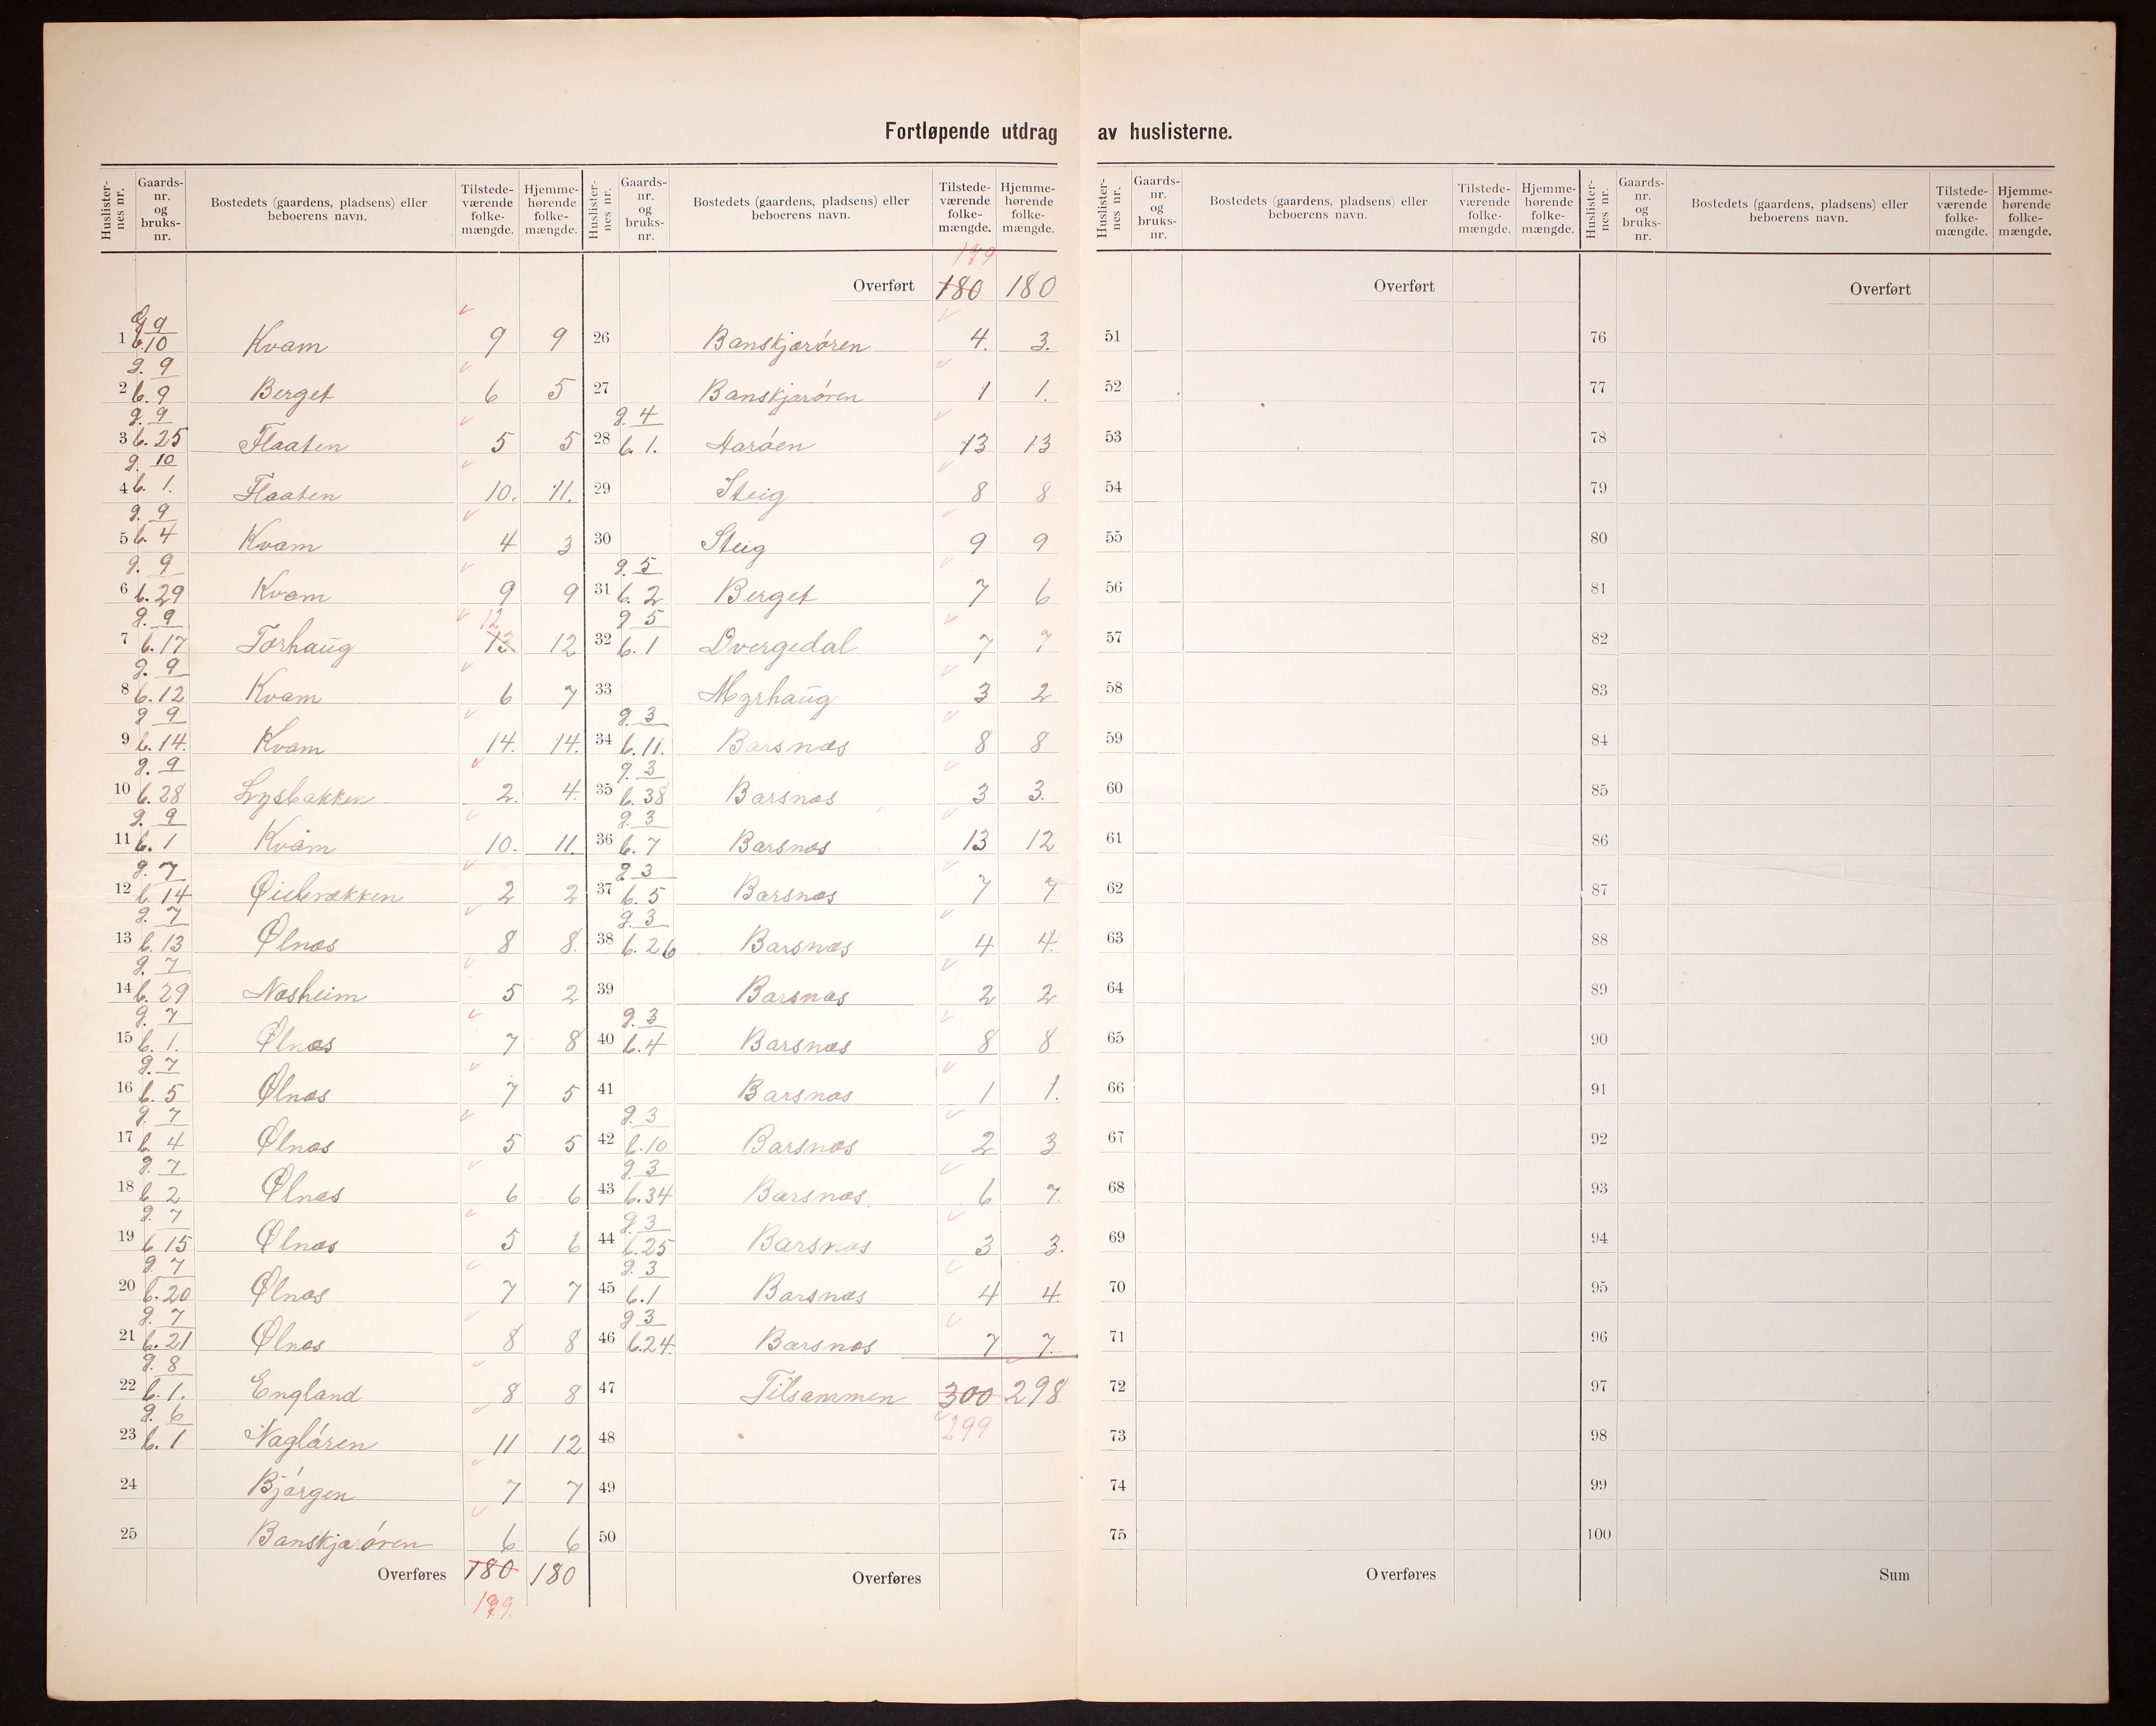 Fortløpende utdrag av huslisterne.
Huslisternes nr. | Gaards-nr. og bruks-nr. | Bostedets (gaardens, pladsens) eller beboerens navn. | Tilstede-værende folke-mængde. | Hjemme-hørende folke-mængde.
1 | g 9 b.10 | Kvam | 9 | 9
2 | g. 9 b. 9 | Berget | 6 | 5
3 | g. 9 b. 25 | Flaaten | 5 | 5
4 | g. 10 b. 1. | Flaaten | 10. | 11.
5 | g. 9 b. 4 | Kvam | 4 | 3
6 | g. 9 b. 29 | Kvam | 9 | 9
7 | g. 9 b. 17 | Torhaug | 13 12 | 12
8 | g. 9 b. 12 | Kvam | 6 | 7
9 | g 9 b. 14. | Kvam | 14. | 14.
10 | g. 9 b. 28 | Lysbakken | 2. | 4.
11 | g. 9 b. 1 | Kvam | 10. | 11.
12 | g. 7 b. 14 | | 2 | 2
13 | g. 7 b. 13 | Ølnæs | 8 | 8.
14 | g. 7 b. 29 | Næsheim | 5 | 2
15 | g. 7 b. 1. | Ølnæs | 7 | 8
16 | g. 7 b. 5 | Ølnæs | 7 | 5
17 | g. 7 b. 4 | Ølnæs | 5 | 5
18 | g. 7 b 2 | Ølnæs | 6 | 6
19 | g. 7 b. 15 | Ølnæs | 5 | 6
20 | g. 7 b. 20 | Ølnæs | 7 | 7
21 | g. 7 b. 21 | Ølnæs | 8 | 8
22 | g. 8 b. 1. | England | 8 | 8
23 | g. 6 b. 1 | Nagløren | 11 | 12
24 | Bjørgen | 7 | 7
25 | Banskjærøren | 6 | 6
Overføres | 180 179. | 180
Huslisternes nr. | Gaards-nr. og bruks-nr. | Bostedets (gaardens, pladsens) eller beboerens navn. | Tilstede-værende folke-mængde. | Hjemme-hørende folke-mængde.
Overført | 179 180 | 180
26 | Banskjærøren | 4. | 3.
27 | Banskjærøren | 1 | 1.
28 | g. 4 b. 1. | Aarøen | 13 | 13
29 | Steig | 8 | 8
30 | Steig | 9 | 9
31 | g. 5 b. 2 | Berget | 7 | 6
32 | g 5 b. 1 | Dvergedal | 7 | 7
33 | Myrhaug | 3 | 2
34 | g. 3 b. 11. | Barsnæs | 8 | 8
35 | g. 3 b. 38 | Barsnæs | 3 | 3.
36 | g. 3 b. 7 | Barsnæs | 13 | 12
37 | g. 3 b. 5 | Barsnæs | 7 | 7
38 | g. 3 b. 26 | Barsnæs | 4 | 4.
39 | Barsnæs | 2 | 2
40 | g. 3 b. 4 | Barsnæs | 8 | 8
41 | Barsnæs | 1 | 1.
42 | g. 3 b. 10 | Barsnæs | 2 | 3
43 | g. 3 b. 34 | Barsnæs | 6 | 7.
44 | g. 3 b. 25 | Barsnæs | 3 | 3.
45 | g. 3 b. 1 | Barsnæs | 4 | 4.
46 | g 3 b. 24. | Barsnæs | 7 | 7.
47 | Tilsammen | 300 299 | 298
48
49
50
Overføres
Huslisternes nr. | Gaards-nr. og bruks-nr. | Bostedets (gaardens, pladsens) eller beboerens navn. | Tilstede-værende folke-mængde. | Hjemme-hørende folke-mængde.
Overført
51
52
53
54
55
56
57
58
59
60
61
62
63
64
65
66
67
68
69
70
71
72
73
74
75
Overføres
Huslisternes nr. | Gaards-nr. og bruks-nr. | Bostedets (gaardens, pladsens) eller beboerens navn. | Tilstede-værende folke-mængde. | Hjemme-hørende folke-mængde.
Overført
76
77
78
79
80
81
82
83
84
85
86
87
88
89
90
91
92
93
94
95
96
97
98
99
100
Sum